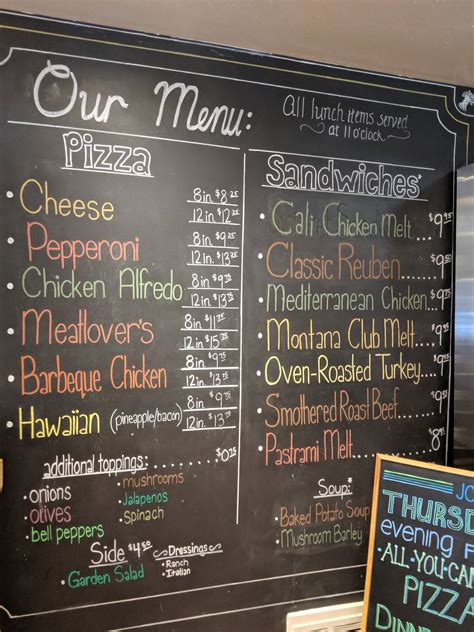 Our Menu:
All lunch items served
at 11 o'clock.
Pizza
• Cheese 8in. $8.25
12in. $12.25
• Pepperoni 8in. $9.25
12in. $13.25
• Chicken Alfredo 8in. $9.75
12in. $13.75
• Meatlover's 8in. $11.75
12in. $15.75
• Barbeque Chicken 8in. $9.75
12in. $13.75
• Hawaiian (pineapple/bacon) 8in. $9.75
12in. $13.75
additional toppings: $0.75
• onions
• olives
• bell peppers
• mushrooms
• Jalapenos
• Spinach
Side $4.50
• Garden Salad
Dressings:
• Ranch
• Italian
Sandwiches*
• Cali Chicken Melt
• Classic Reuben
• Mediterranean Chicken
• Montana Club Melt
• Oven-Roasted Turkey
• Smothered Roast Beef
• Pastrami Melt
Soup:
• Baked Potato Soup
• Mushroom Barley
THURSD
evening
•ALL-YOU-CA
PIZZA
DINNE